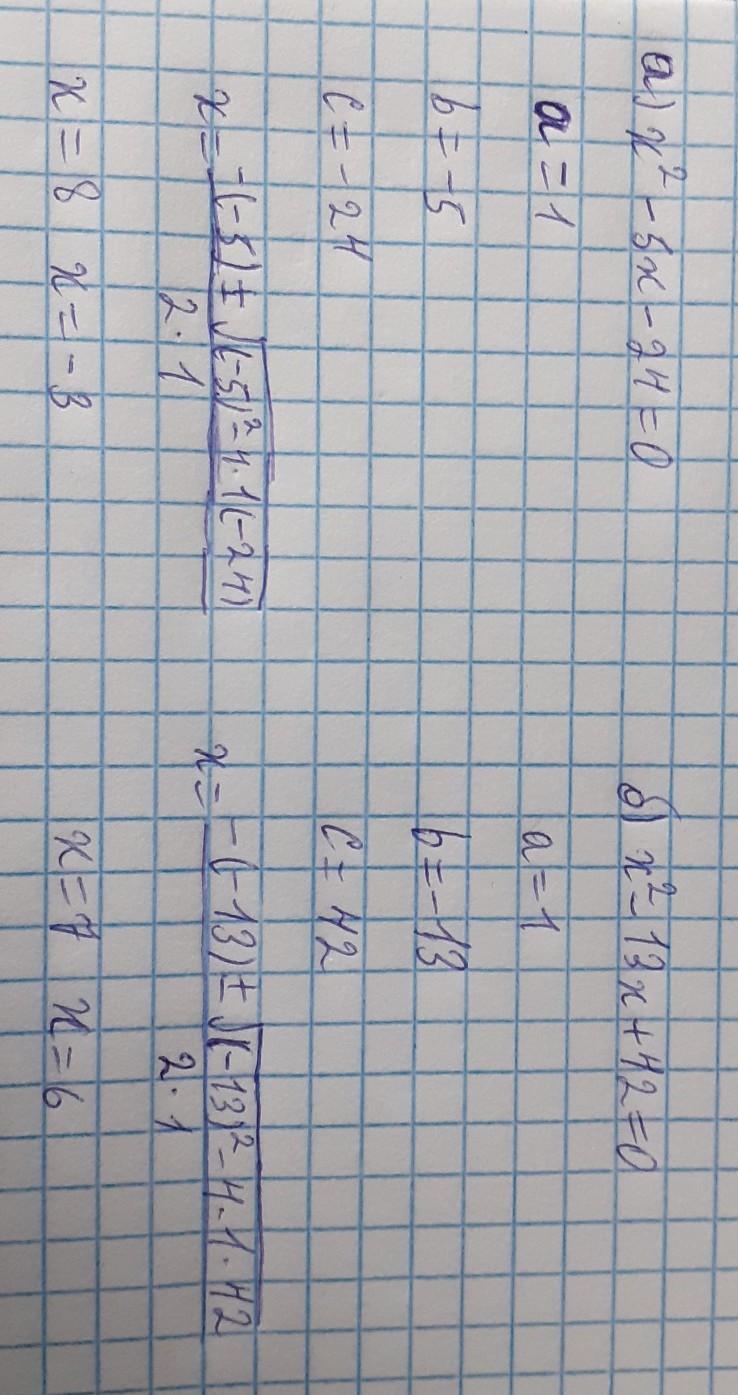 а) x² - 5x - 24 = 0
a = 1
b = -5
c = -24
x = -(-5) ± √(-5)² - 4 · 1(-24)
2 · 1
x = 8 x = -3
б) x² - 13x + 42 = 0
a = 1
b = -13
c = 42
x = -(-13) ± √(-13)² - 4 · 1 · 42
2 · 1
x = 7 x = 6